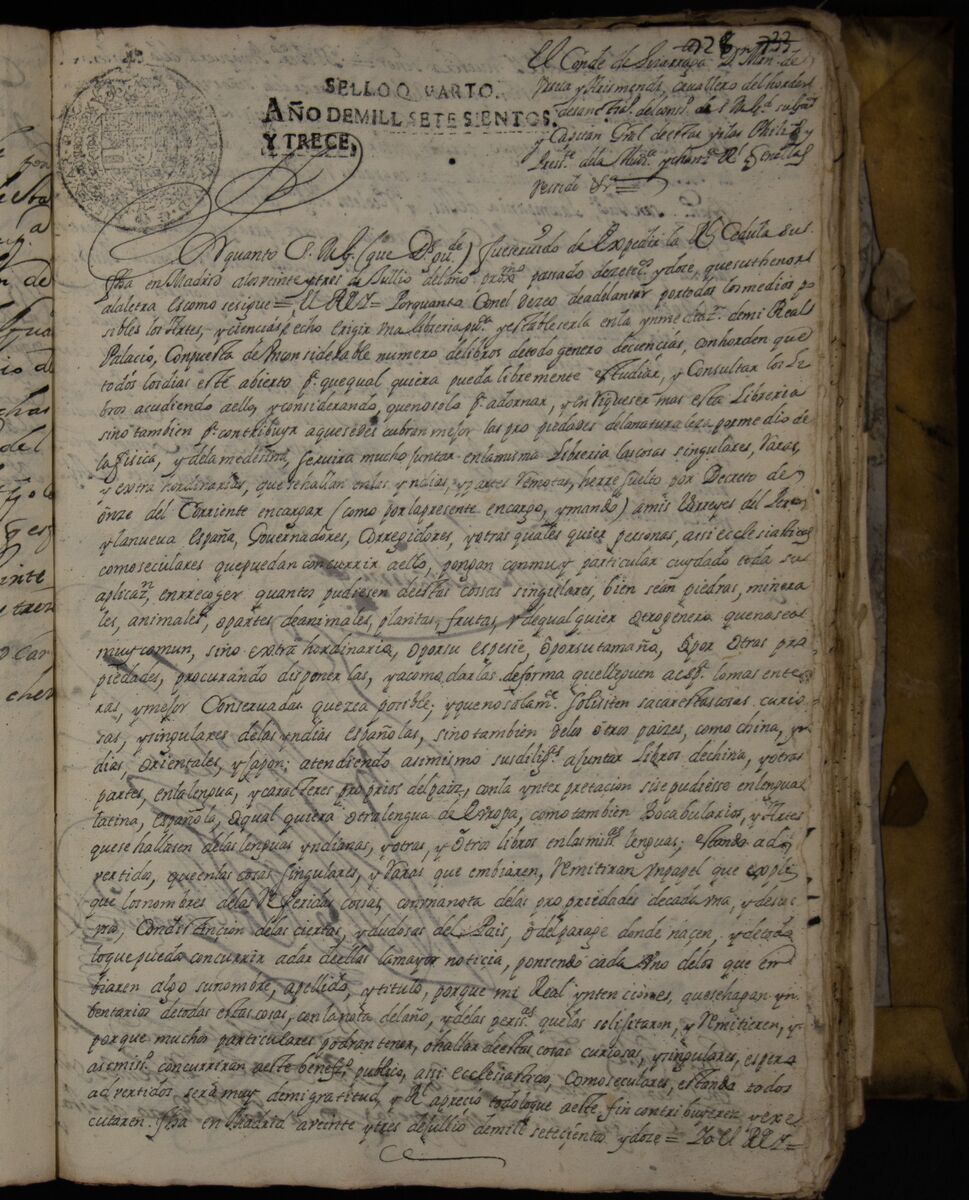 228 233
SELLO QVARTO.
AÑO DE MILL SETESIENTOS.
Y TRECE,
El Conde de Lizarraga Dn Mrn. de
Vrsua y Arismendi, cauallero del horden
desanctiaº. delconsº. de S Magd. su Gouor
y Capitan Gral destas yslas Philipas y
Presidte. dela Audª. y chanzª Rl q enellas
Recide &ª =
Porquanto S. Mg. (que Ds gude.) fue seruido de Expedir la Rl Cedula sus
fha en Madrid alos veinte y tres de Jullio del año proximo passado dezetecos. y doze, que su thenor
alaletra es como se sigue = El REY = Porquanto Con el dezeo de adelantar por todos los medios po
sibles los Artes, y ciencias he echo erigir vna libreria puca. y establecerla en la ynmediaz.n demi Real
Palacio, Conpuesta de vn considerable numero de libros detodo genero de ciencias, con horden que
todos los dias esté abierto pª. que qual quiera pueda libremente estudiar, y Consultar los Li
bros acudiendo aello, y considerando, que no solo pª. adornar, y enrriqueser mas esta Libreria
sino tambien pª. contribuyr aque se descubran mejor las pro piedades dela naturaleza por medio de
la fisica, y dela medesina, seruira mucho juntar en la misma Libreria las cosas singulares, raras,
y extra hordinarias, que se hallan en las yndias, y partes remotas, he rresuelto por Decreto de
onze del Corriente encargar (como por la presente encargo, y mando) a mis Virreyes del Peru
y la nueva España, Gouernadores, Corregidores, y otras quales quier personas, assi ecclesiasticas
como seculares que puedan concurrir aello, pongan con muy particular cuydado toda su
aplicazn. en rrecoger quantos pudiesen destas cosas singulares, bien sean piedras, minera
les, animales, o partes de animales, plantas, frutas, y de qual quier otro género que no sea
muy comun, sino extra hordinario, o por su espesie, o por su tamaño, o por otras pro
piedades, procurando disponerlas, y acomodarlas de forma que lleguen aesta. lo mas ente
ras, y mejor Conservadas que zea posible, y que no solamte. soliciten sacar estas cosas curio
sas, y singulares de las yndias españolas, sino tambien delos otro paizes, como china, yn
dias, orientales, y Japon; atendiendo asimismo sus diligs. a juntar libros de china, y otras
partes, en la lengua, y caracteres proprios del paiz, con la ynterpretacion si se pudiesse en lengua
latina, española, o qual quiera otra lengua de Evropa, como tambien Bocabularios, y Artes
que se hallasen delas lenguas yndianas, y otras, y otros libros en las mismas lenguas; estando ad
vertido, que en las cosas singulares, y raras que embiaren, remitiran vn papel que expli
que los nombres delas Referidas cosas, con vna nota delas propriedades de cada vna, y desu
pro, Con distincion delas ciertas, y dudosas del Pais, o del parage donde nacen, y de todo
lo que pueda concurrir a dar de ellas la mayor noticia, poniendo cada vno delos que em
biaren algo su nombre, apellido, y titulo, porque mi Real yntencion es, que se hagan yn
bentarios detodas estas cosas, con la nota del año, y delas perssas. que las solisitaron, y remitieren, y
porque muchos particulares podran tener, o hallar destas cosas curiosas, y singulares, espero
asimismº. concurriran aeste benefº. publico, assi ecclesiastico, como seculares, estando todos
advertidos sera muy demi gratitud, y Rl aprecio todo lo que aeste fin contribuyeren, y exe
cutaren. Fha en Madrid a veinte y tres de Jullio de mill setecientos y doze = Yo El REY =